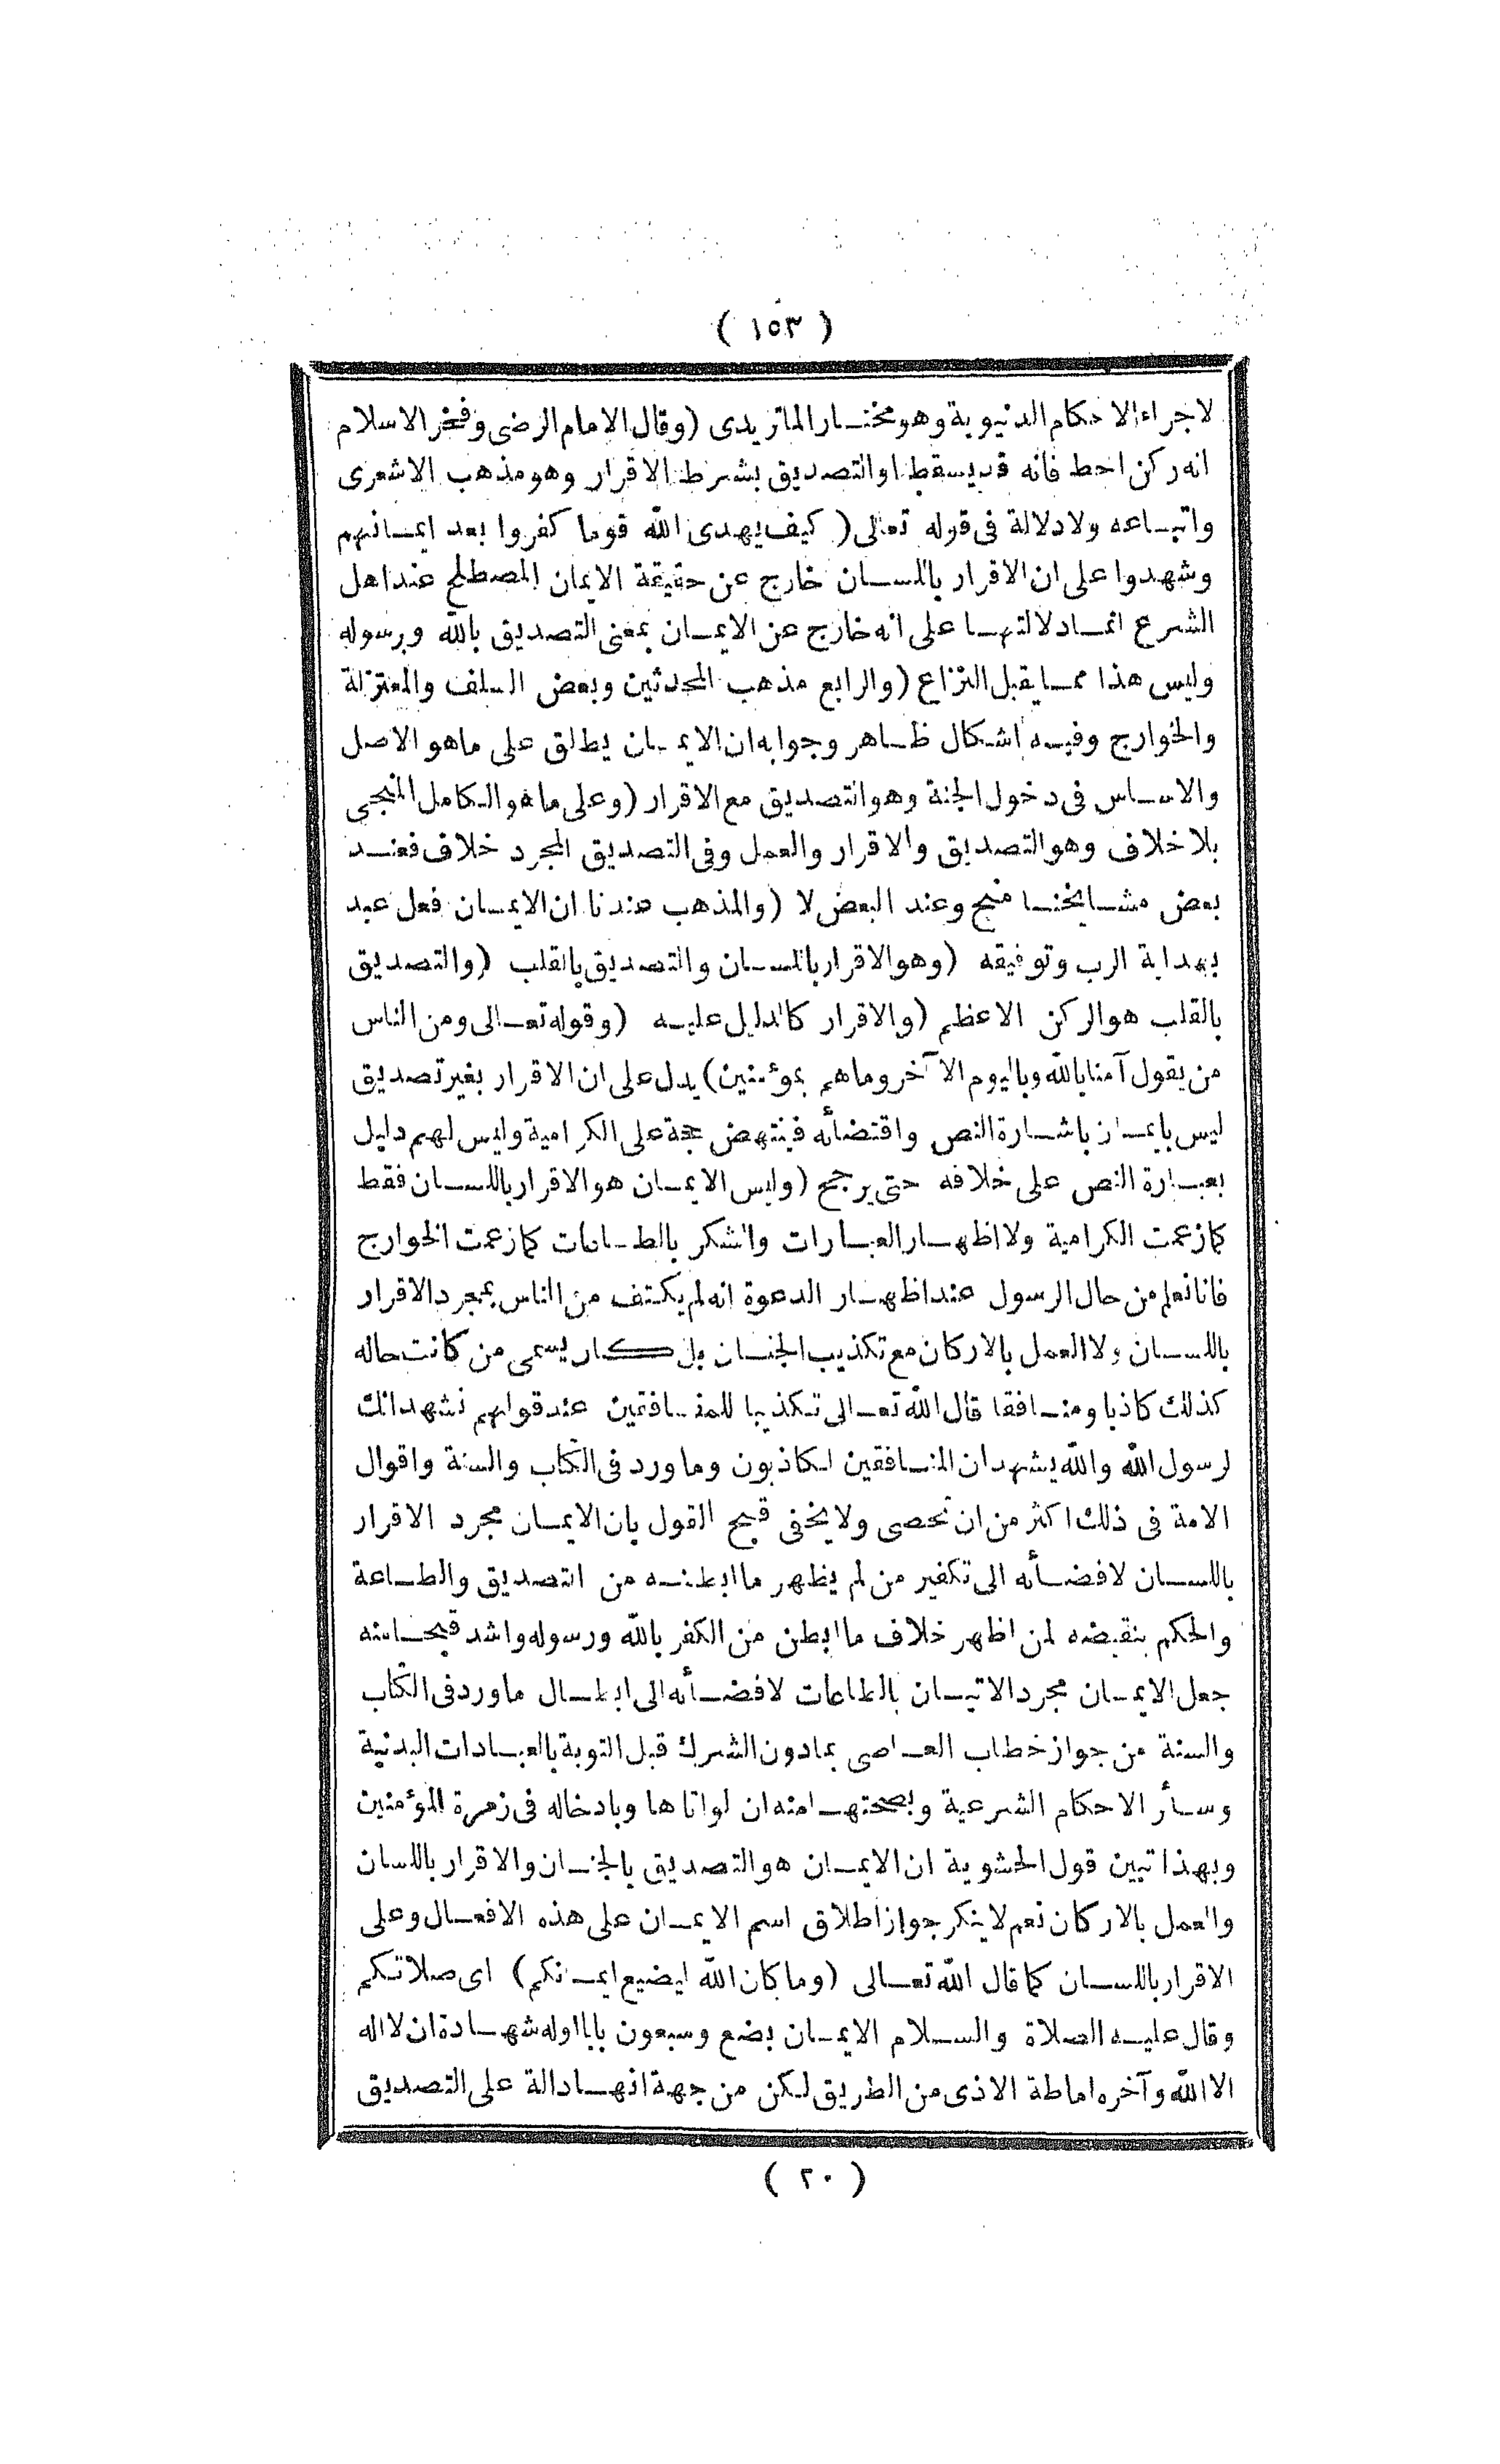 ( ١٥٣ )
لاجراء الاحكام الدنيوية وهو مختار الماتريدى (وقال الامام الرضى وفخر الاسلام
انه ركن احط فانه قديسقط او التصديق بشرط الاقرار وهو مذهب الاشعرى
واتباعه ولا دلالة فى قوله تعالى ( كيف يهدى الله قوما كفروا بعد ايمانهم
وشهدوا على ان الاقرار باللسان خارج عن حقيقة الايمان المصطلح عند اهل
الشرع انما دلالتها على انه خارج عن الايمان بمعنى التصديق بالله وبرسوله
وليس هذا مما يقبل النزاع (والرابع مذهب المحدثين وبعض السلف والمعتزلة
والخوارج وفيه اشكال ظاهر وجوابه ان الايمان يطلق على ماهو الاصل
والاساس فى دخول الجنة وهو التصديق مع الاقرار (وعلى ماهو الكامل المنجى
بلا خلاف وهو التصديق والاقرار والعمل وفى التصديق المجرد خلاف فعند
بعض مشايخنا منج وعند البعض لا (والمذهب عندنا ان الايمان فعل عبد
بهداية الرب وتوفيقه (وهو الاقرار باللسان والتصديق بالقلب (والتصديق
بالقلب هو الركن الاعظم (والاقرار كالدليل عليه (وقوله تعالى ومن الناس
من يقول آمنا بالله وباليوم الآخر وماهم بمؤمنين) يدل على ان الاقرار بغير تصديق
ليس بايمان باشارة النص واقتضائه فينتهض حجة على الكرامية وليس لهم دليل
بعبارة النص على خلافه حتى يرجح (وليس الايمان هو الاقرار باللسان فقط
كما زعمت الكرامية ولا اظهار العبارات والشكر بالطاعات كما زعمت الخوارج
فانا نعلم من حال الرسول عند اظهار الدعوة انه لم يكتف من الناس بمجرد الاقرار
باللسان ولا العمل بالاركان مع تكذيب الجنان بل كان يسمى من كانت حاله
كذلك كاذبا ومنافقا قال الله تعالى تكذيبا للمنافقين عند قولهم نشهد انك
لرسول الله والله يشهد ان المنافقين لكاذبون وما ورد فى الكتاب والسنة واقوال
الامة فى ذلك اكثر من ان تحصى ولا يخفى قبح القول بان الايمان مجرد الاقرار
باللسان لافضائه الى تكفير من لم يظهر ما ابطنه من التصديق والطاعة
والحكم بنقيضه لمن اظهر خلاف ما ابطن من الكفر بالله ورسوله واشد قبحا منه
جعل الايمان مجرد الاتيان بالطاعات لافضائه الى ابطال ما ورد فى الكتاب
والسنة من جواز خطاب العاصى بمادون الشرك قبل التوبة بالعبادات البدنية
وسائر الاحكام الشرعية وبصحتها منه ان لو اتاها وبادخاله فى زمرة المؤمنين
وبهذا تبين قول الحشوية ان الايمان هو التصديق بالجنان والاقرار باللسان
والعمل بالاركان نعم لا ينكر جواز اطلاق اسم الايمان على هذه الافعال وعلى
الاقرار باللسان كما قال الله تعالى (وما كان الله ليضيع ايمانكم) اى صلاتكم
وقال عليه الصلاة والسلام الايمان بضع وسبعون بابا اوله شهادة ان لا اله
الا الله وآخره اماطة الاذى من الطريق لكن من جهة انها دالة على التصديق
( ٢٠ )